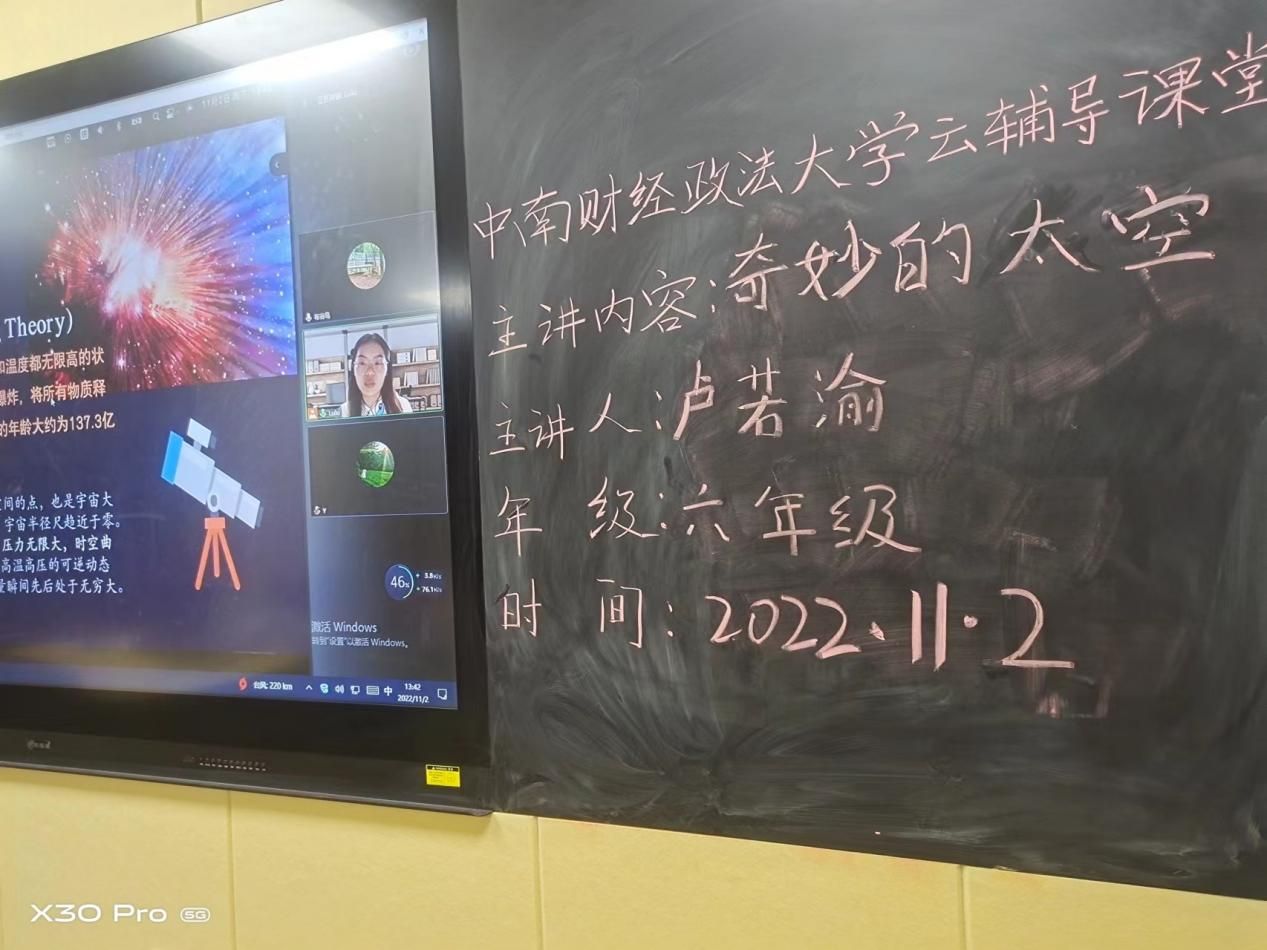 Theory)
和温度都无限高的状
爆炸，将所有物质释
的年龄大约为137.3亿
间的点，也是宇宙大
宇宙半径尺趋近于零。
压力无限大，时空曲
高温高压的可逆动态
瞬间先后处于无穷大。
Lulu
46%
3.8K/s
76.1K/s
激活 Windows
转到"设置"以激活 Windows。
台风: 220 km
中
13:42
2022/11/2
中南财经政法大学云辅导课堂
主讲内容:奇妙的太空
主讲人:卢若渝
年级:六年级
时间:2022.11.2
X30 Pro 5G